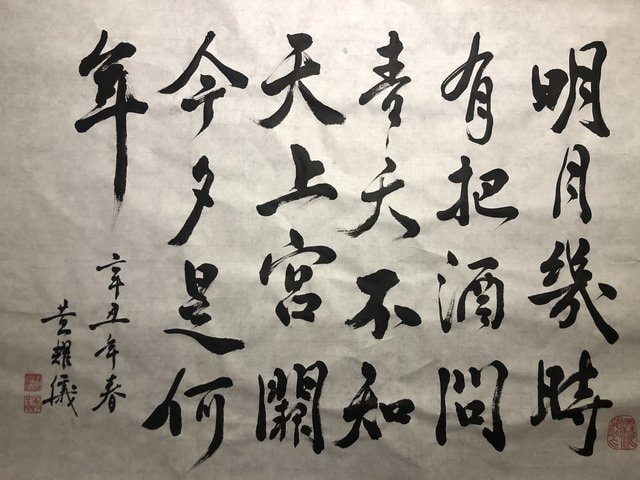 明月幾時
有把酒問
青天不知
天上宮闕
今夕是何
年
辛丑年春
黄耀儀